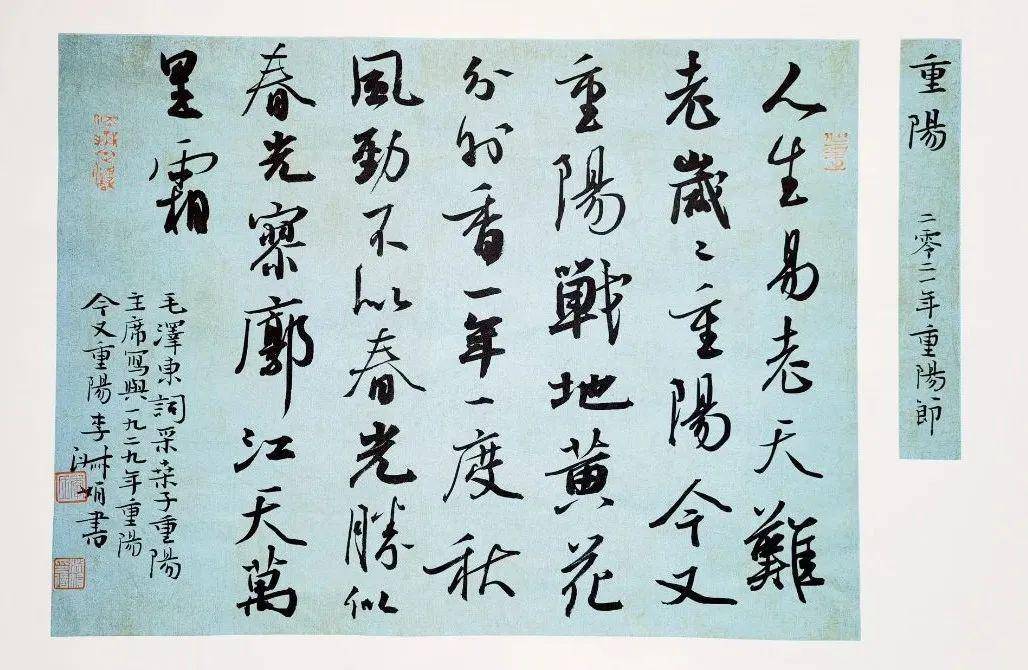 重陽 二零二一年重陽節
人生易老天難
老歲〻重陽今又
重陽戰地黄花
分外香一年一度秋
風勁不似春光勝似
春光寥廓江天萬
里霜
毛澤東詞采桑子重陽
主席寫與一九二九年重陽
今又重陽李淑娟書